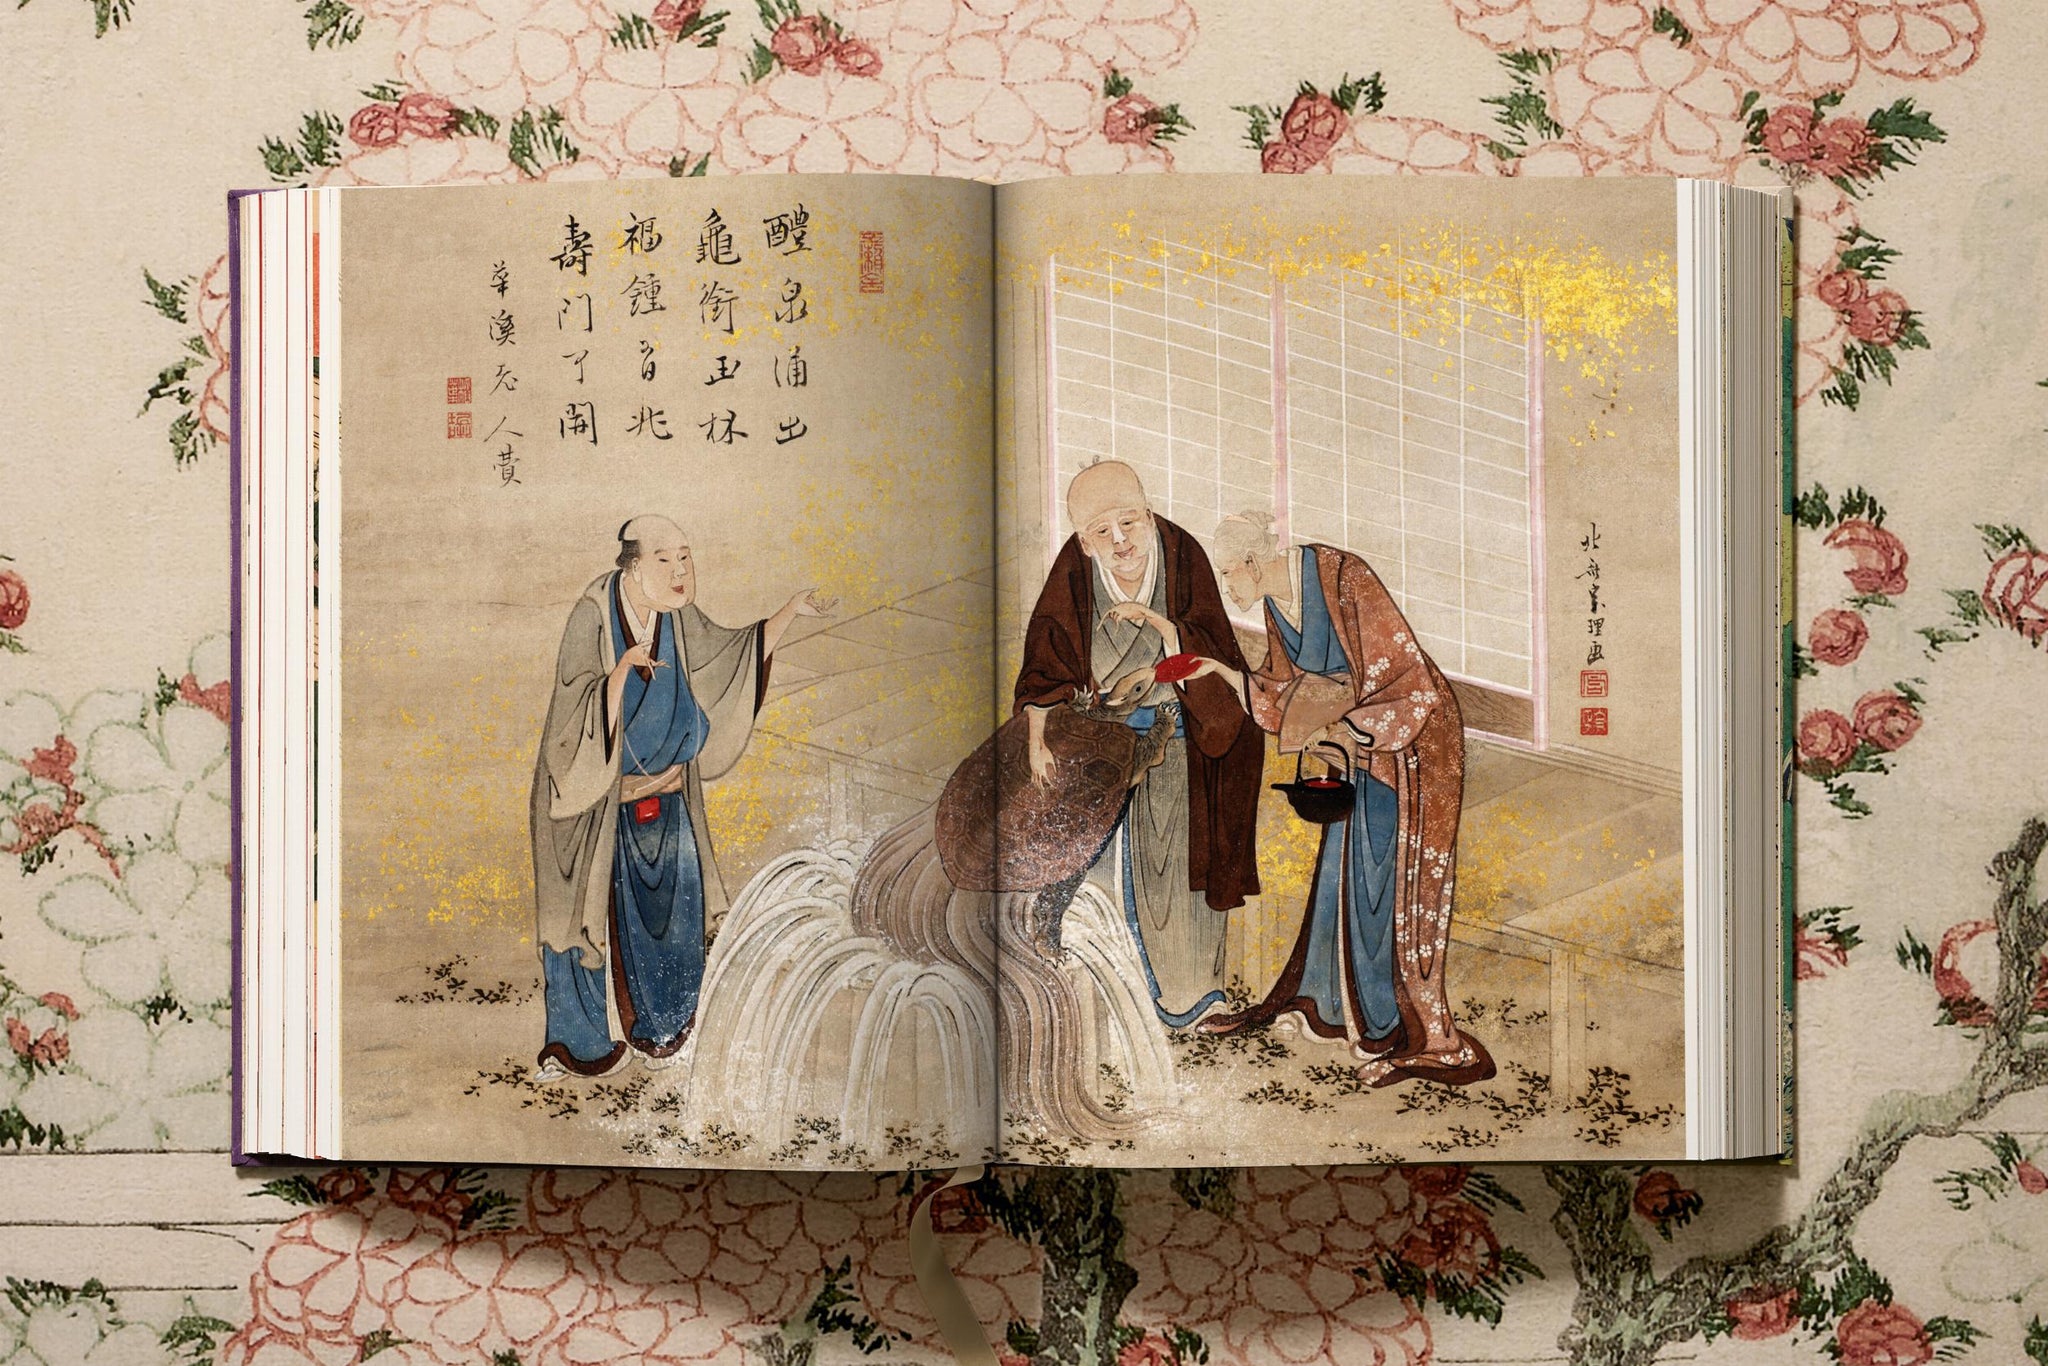 北斎宗理画
醴泉涌出
龜銜玉杯
福鍾有兆
壽門可開
華溪老人賛